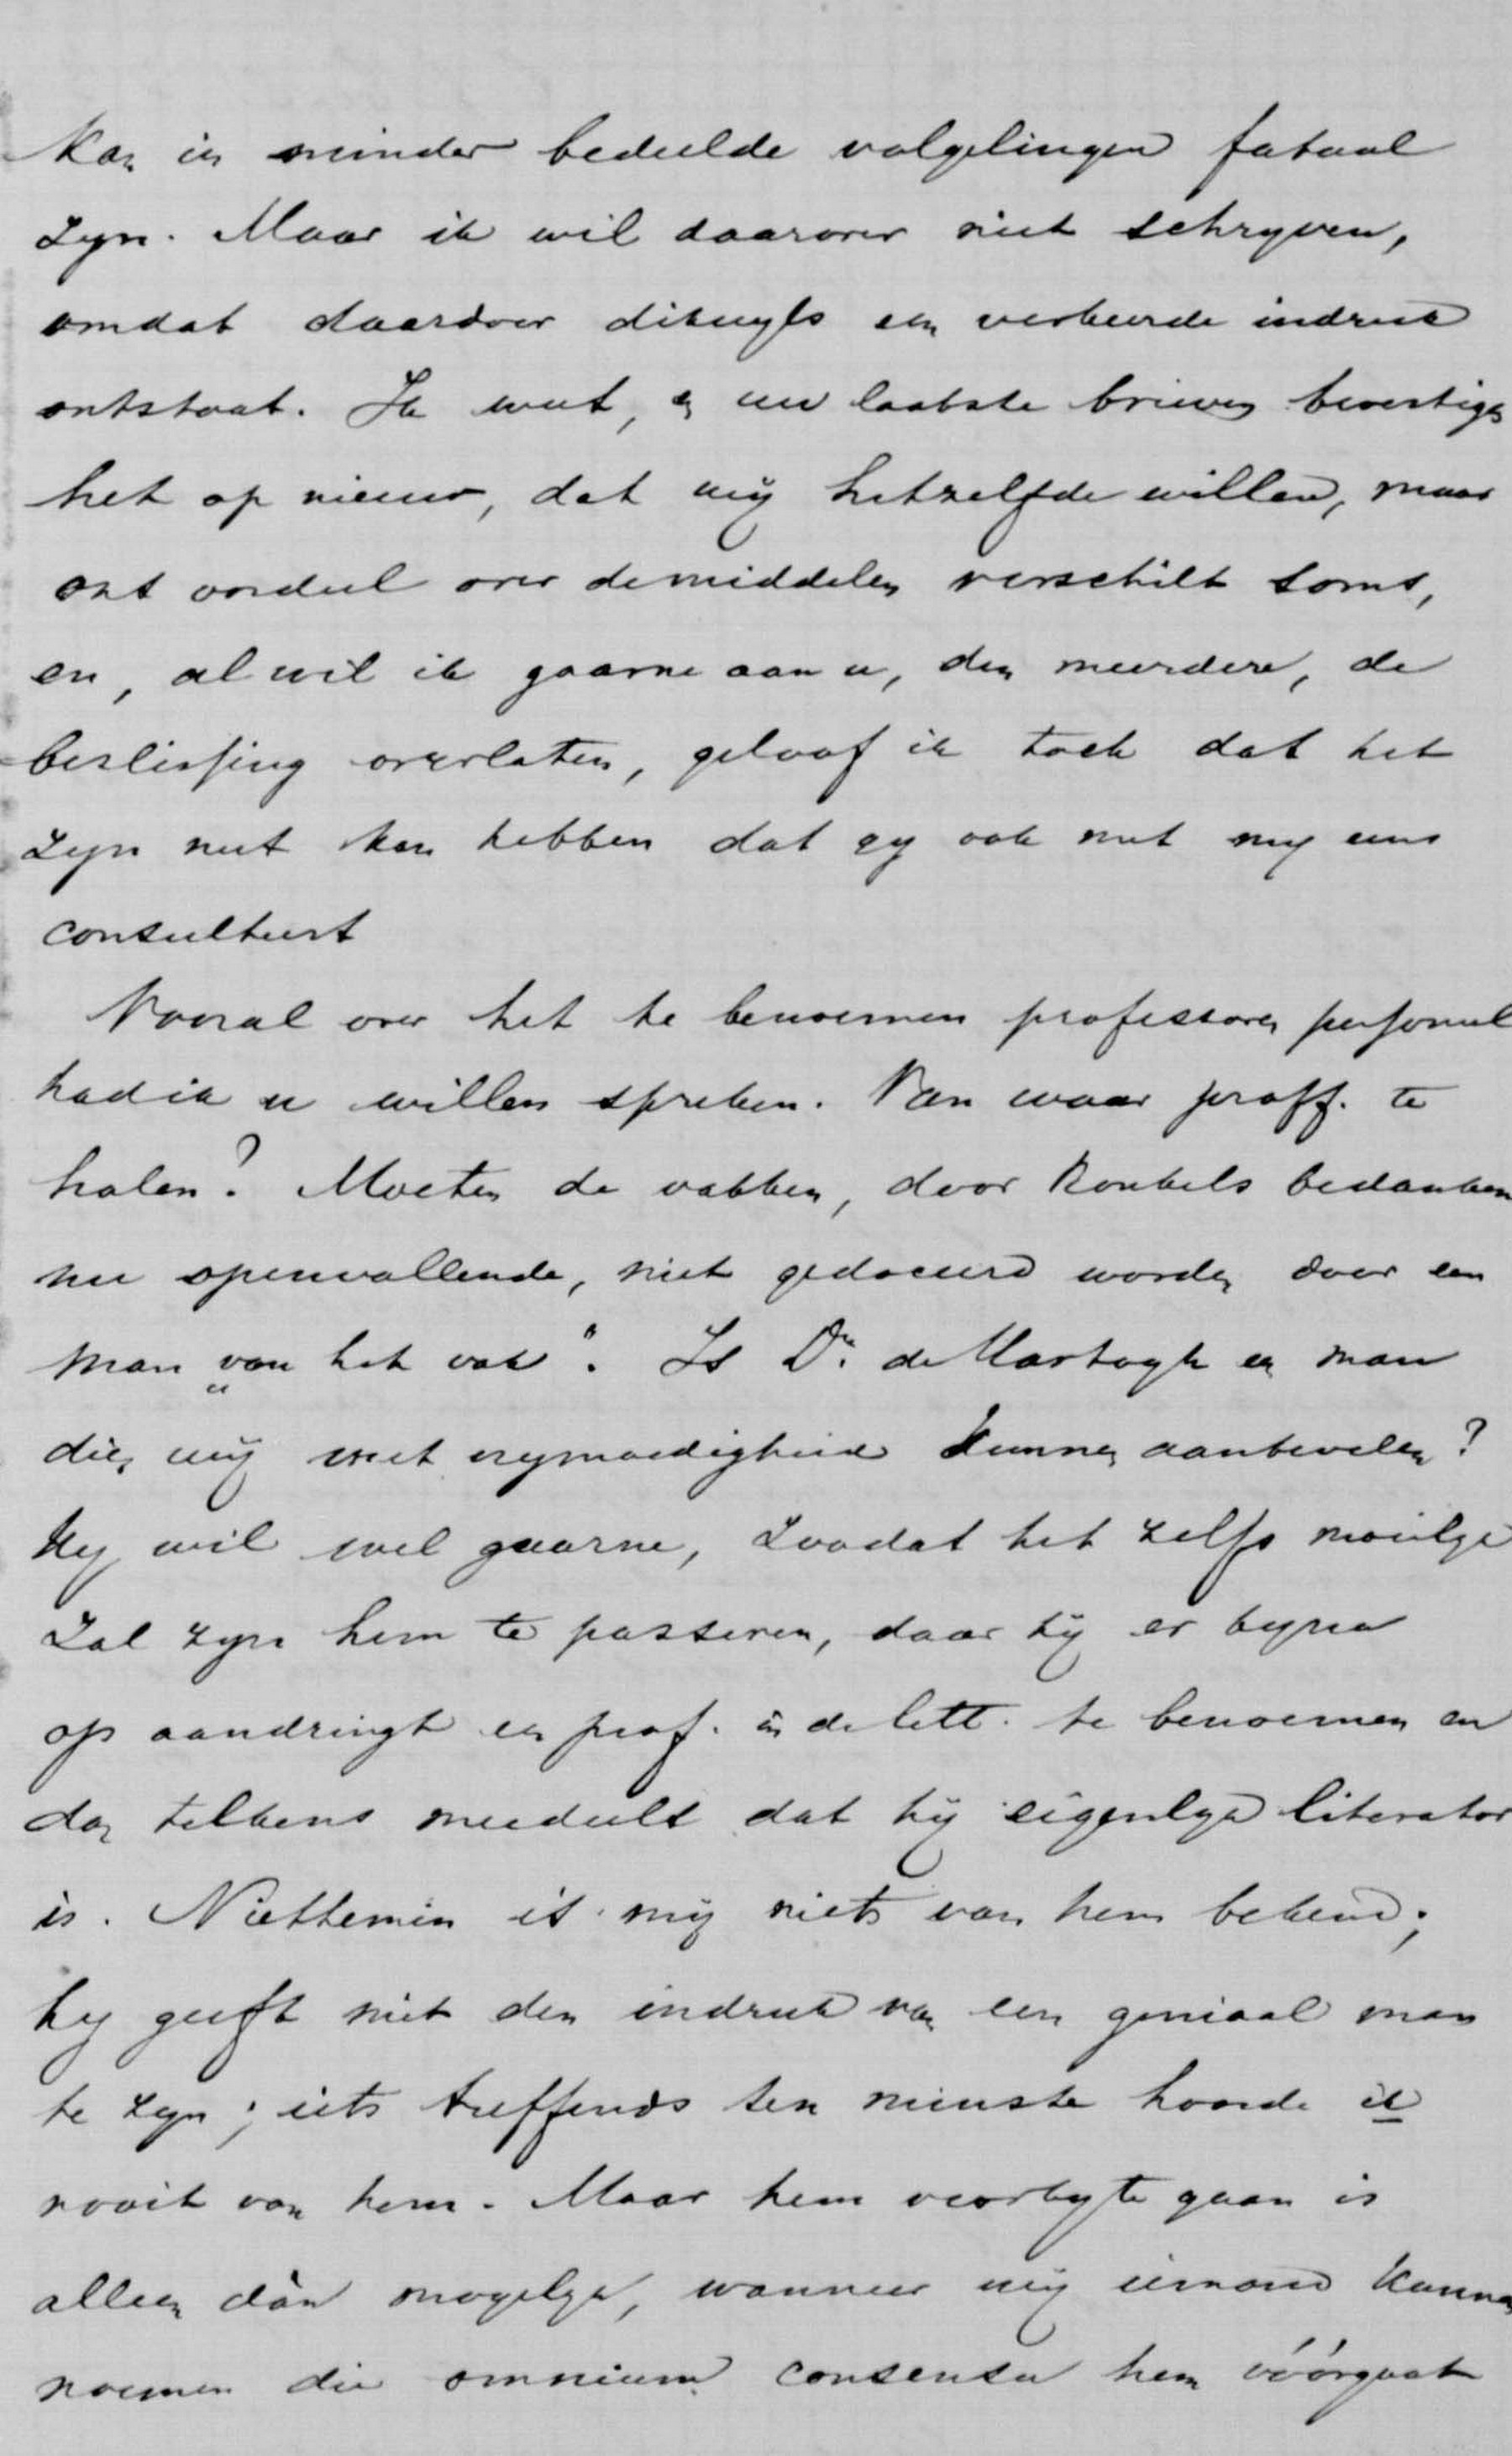 kan in minder bedeelde volgelingen fataal
zyn. Maar ik wil daarover niet schryven,
omdat daardoor dikwyls een verkeerde indruk
ontstaat. Ik weet, en uw laatste brieven bevestigen
het op nieuw, dat wij hetzelfde willen, maar
ons oordeel over de middelen verschilt soms,
en, al wil ik gaarne aan u, den meerdere, de
beslissing overlaten, geloof ik toch dat het
zyn nut kan hebben dat gy ook met my eens
consulteert
Vooral over het te benoemen professoren personeel
had ik u willen spreken. Van waar proff. te
halen? Moeten de vakken, door Roubels bedanken
nu openvallende, niet gedoceerd worden door een
man „van het vak". Is Dr. de Hartogh een man
dien wij met vrymoedigheid kunnen aanbevelen?
Hy wil wel gaarne, zoodat het zelfs moeilyk
zal zyn hem te passeren, daar hij er byna
op aandringt een prof. in de lett. te benoemen en
dan telkens meedeelt dat hij eigenlyk literator
is. Niettemin is mij niets van hem bekend;
hy geeft niet den indruk van een geniaal man
te zyn; iets treffends ten minste hoorde ik
nooit van hem. Maar hem voorby te gaan is
alleen dàn mogelyk, wanneer wij iemand kunnen
noemen die omnium consensu hem vóórgaat